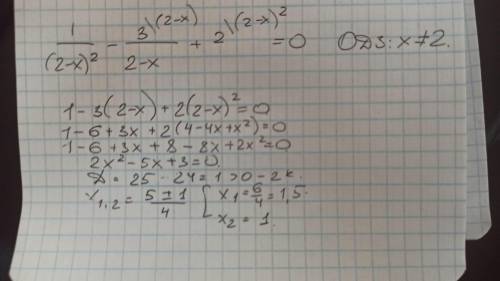 1/(2-x)² - 3\(2-x)/(2-x) + 2\(2-x)² = 0 ОДЗ: x≠2.
1-3(2-x)+2(2-x)²=0
1-6+3x+2(4-4x+x²)=0
1-6+3x+8-8x+2x²=0
2x²-5x+3=0
D = 25-24=1>0-2k.
x₁,₂ = (5±1)/4 [ x₁=6/4=1,5.
x₂=1.